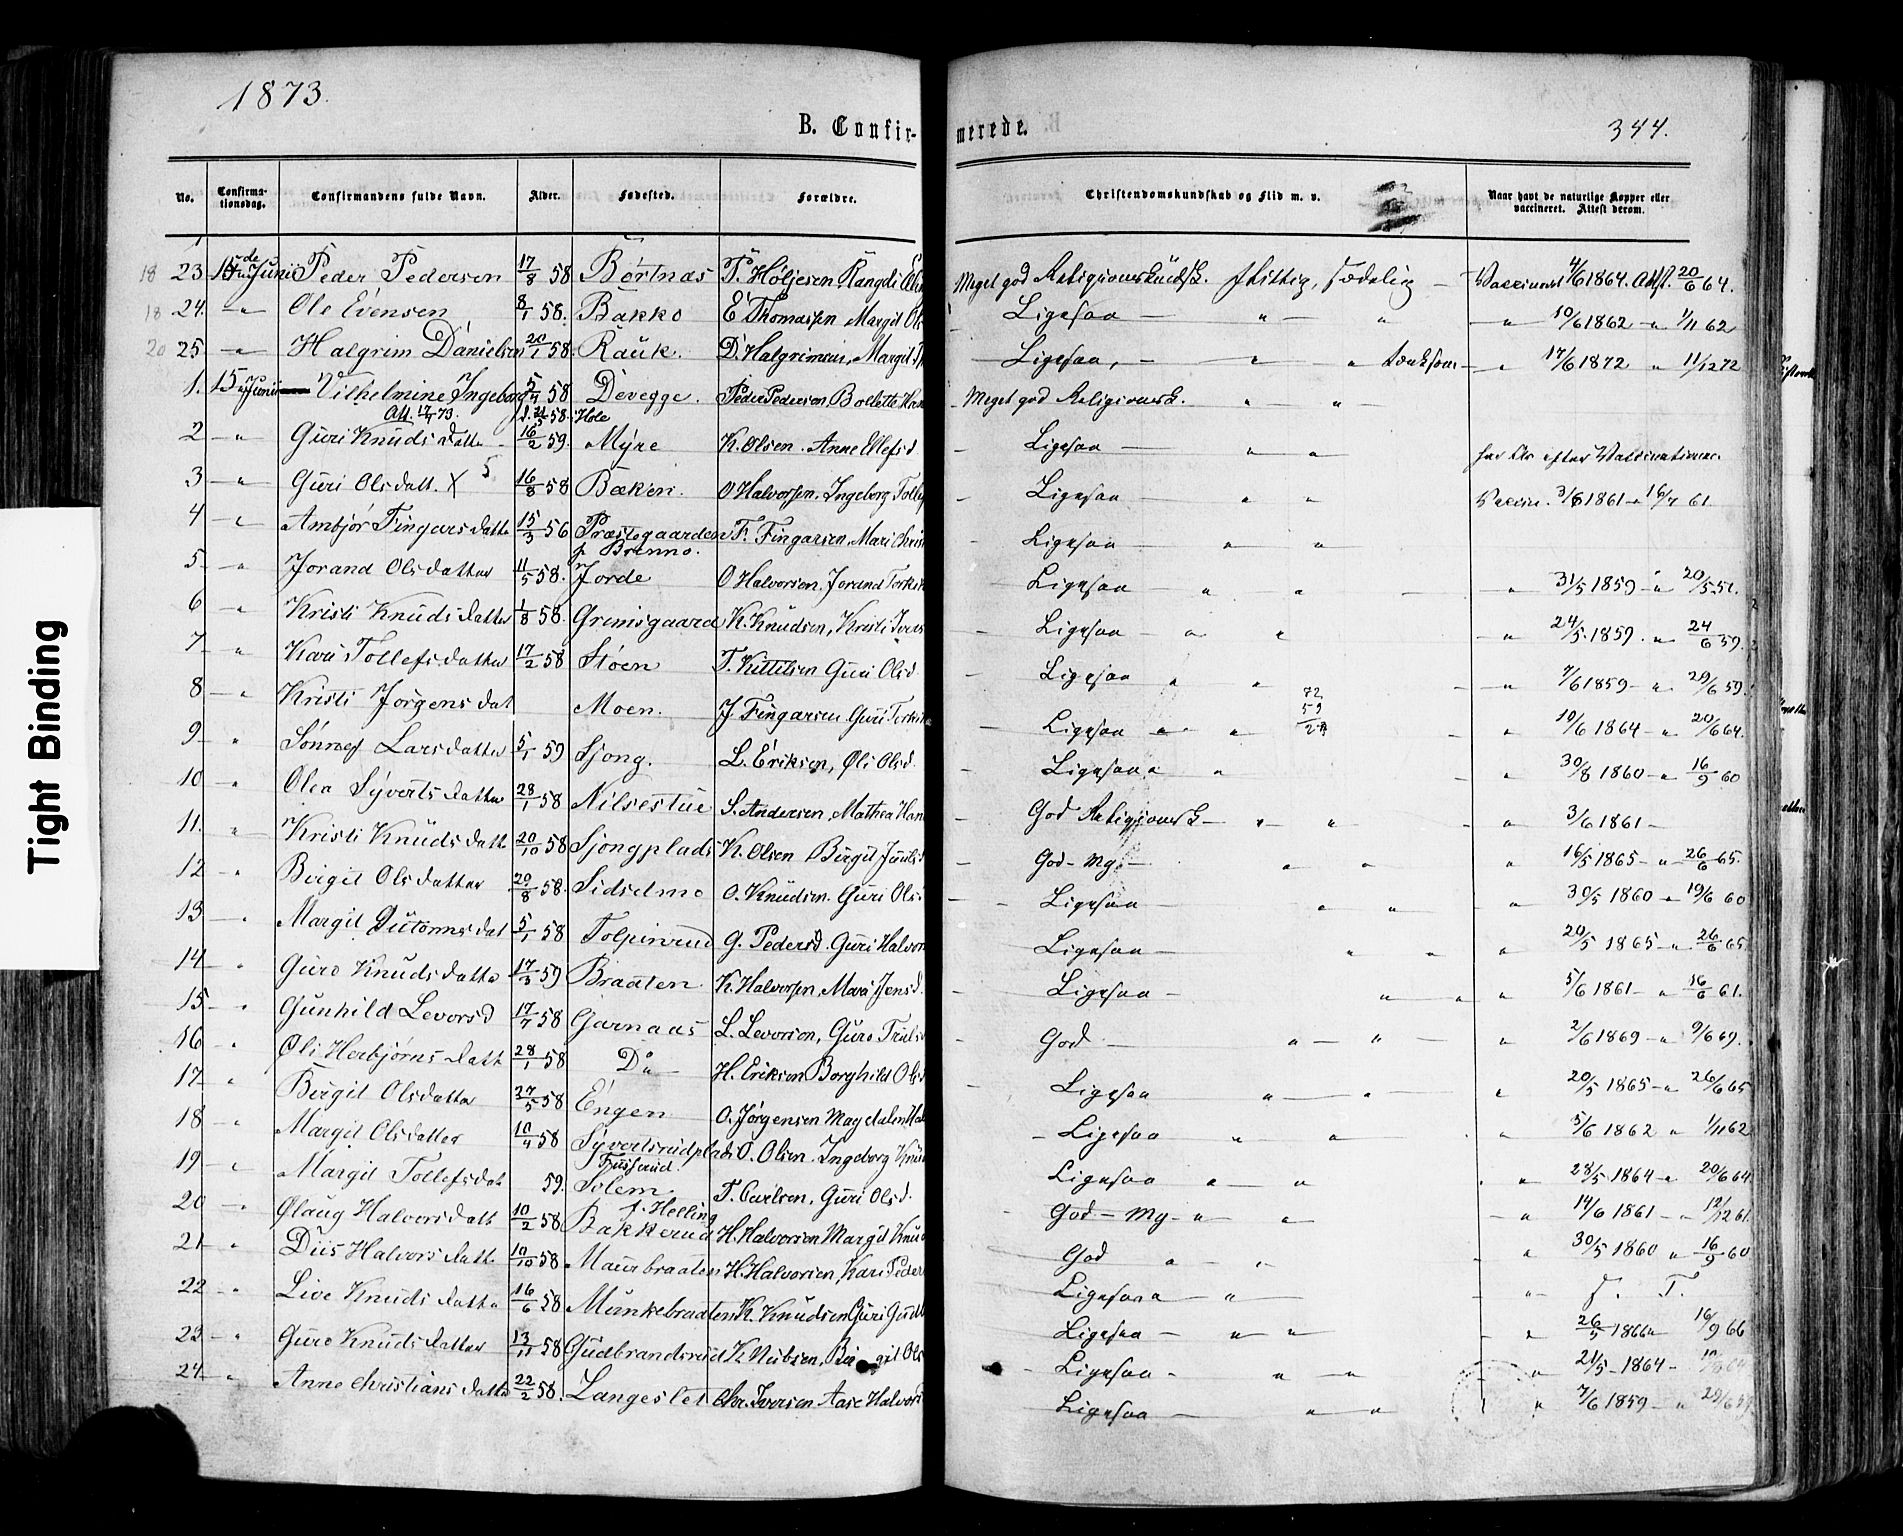 1873.
B. Confir-
merede.
344.
No. Confirma-tionsdag. Confirmandens fulde Navn. Alder. Fødested. Forældre. Christendomskundskab og Flid m. v. Naar havt de naturlige Kopper eller vaccineret. Attest derom.
18 23 15de Junii Peder Pedersen 17/8 58 Børtnæs P. Høljesen Rangdi Meget god flittig, sædelig — 4/6 1864. Attst. 20/6 64.
18 24 — " — Ole Evensen 8/1 58. Bakko E Thomassen Margit Ols Ligesaa " — " — " 10/6 1862 — " 1/11 62
20 25 — " — Halgrim Danielsen 20/1 58. Rauk. D. Halgrimsen, Margit Ligesaa, — " " tænksom — " 17/6 1872 " 11/12 72
1. 15 Junii Vilhelmine Ingeborg 5/4 58 Devegge. Peder Pedersen Bollette Han Meget god Religionsk. " — "
Att. 73. 58. Hole
2 — " Guri Knudsdatt. 16/2 59. Myre K. Olsen. Anne Ellefsd Ligesaa — " "
3 — " Guri Olsdatt. X 5 16/8 58 Bakken. O Halvorsen, Ingeborg Ligesaa — " " 3/6 1861 — " 16/7 61.
4 — " Ambjør Fingarsdatte 15/3 56 Præstegaarden F. Fingarsen, Mari Christ Ligesaa — " "
f Brenno.
5 — " Jorand Olsdatter 11/5 58. Jorde O Halvorsen, Jorand Torkil Ligesaa — " " — " 31/5 1859 — "
6 — " Kristi Knudsdatter 1/8 58. Grimsgaard K. Knudsen, Kristi Ivers Ligesaa — " " " 24/5 1859. " 24/6 59.
7 — " Kari Tollefsdatter 17/2 58 Støen T. Kittilsen Guri Olsd. Ligesaa " " — " 7/6 1859 — " 29/6 59.
72
59
8 — " Kristi Jørgensdat Moen. J Fingarsen Guri Ligesaa " " " 10/6 1864 — " 20/6 64.
9 — " Larsdatter 5/1 59 Sjong. L. Eriksen, Øli Olsd. Ligesaa " " " 30/8 1860 — " 16/9 60
10 " Olea Syvertsdatter 28/1 58 Nilsestue S. Andersen, Mathea Han God Religionsk — " " — " 3/6 1861 —
11. " Kristi Knudsdatte 20/10 58 Sjongplads K. Olsen Birgit God — Mg. — " " " 16/5 1865 — " 26/6 65.
12 — " Birgit Olsdatter 20/8 58. Sidselmo O. Knudsen. Guri Ols. Ligesaa — " " — " 30/5 1860 " 19/6 60
13 — " Margit Guttormsdat 5/1 58 Tolpinrud G. Pedersd. Guri Halvor Ligesaa — " " " 20/5 1865 — " 26/6 65.
14 — " Guro Knudsdatte 17/3 59 Braaten K. Halvorsen, Mari Jensd. Ligesaa — " " " 5/6 1861 — " 16/6 61.
15 — " Gunhild Levorsd 17/7 58 Garnaas L. Levorsen, Guro Truls God — " — " — " 2/6 1869 — " 9/6 69.
16 " Øli Herbjørnsdatt 28/1 58 Do — H. Eriksen Borghild Ols Ligesaa " — " — " 20/5 1865 — " 26/6 65
17 — " Birgit Olsdatter 27/5 58 Engen O. Jørgensen Magdalen Hal — Ligesaa " " " 5/6 1862 " 1/11 62
18 " Margit Olsdatter 10/4 58 Syvertsrudplads O. Olsen. Ingeborg Knu Ligesaa " — " " 28/5 1864 — " 20/6 64
19 — " Margit Tollefsdat 59. Solem T. Carlsen, Guri Olsd. God — Mg — " " — " 14/6 1861 — " 12/12 61
20 — " Ølaug Halvorsdatt 10/2 58 Bakkerud H. Halvorsen Margit Knu God " — " " 30/5 1860 " 16/9 60
f. Helling
21 — " Halvorsdatt. 10/10 58. Maurbraaten H. Halvorsen, Kari Peder Ligesaa — " — — " —
22 — " Live Knudsdatte 16/6 58 Munkebraaten K. Knudsen Guri Gudb Ligesaa — " " — " 26/5 1866 " 16/9 66
23 — " Guro Knudsdatter 13/11 58 Gudbrandsrud K Nubsen, Birgit Ols Ligesaa — " — " " 21/5 1864 —
24 — " Anne Christiansdatte 22/2 58. Langeslet Chr. Iversen Aase Halvors Ligesaa — " " " 7/6 1859 — " 29/6 59
Tight Binding